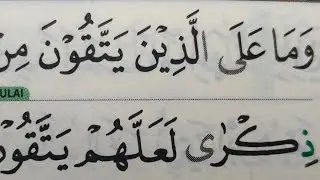 وَمَا عَلَى الَّذِيْنَ يَتَّقُوْنَ مِنْ
ULAI
ذِكْرٰى لَعَلَّهُمْ يَتَّقُوْنَ